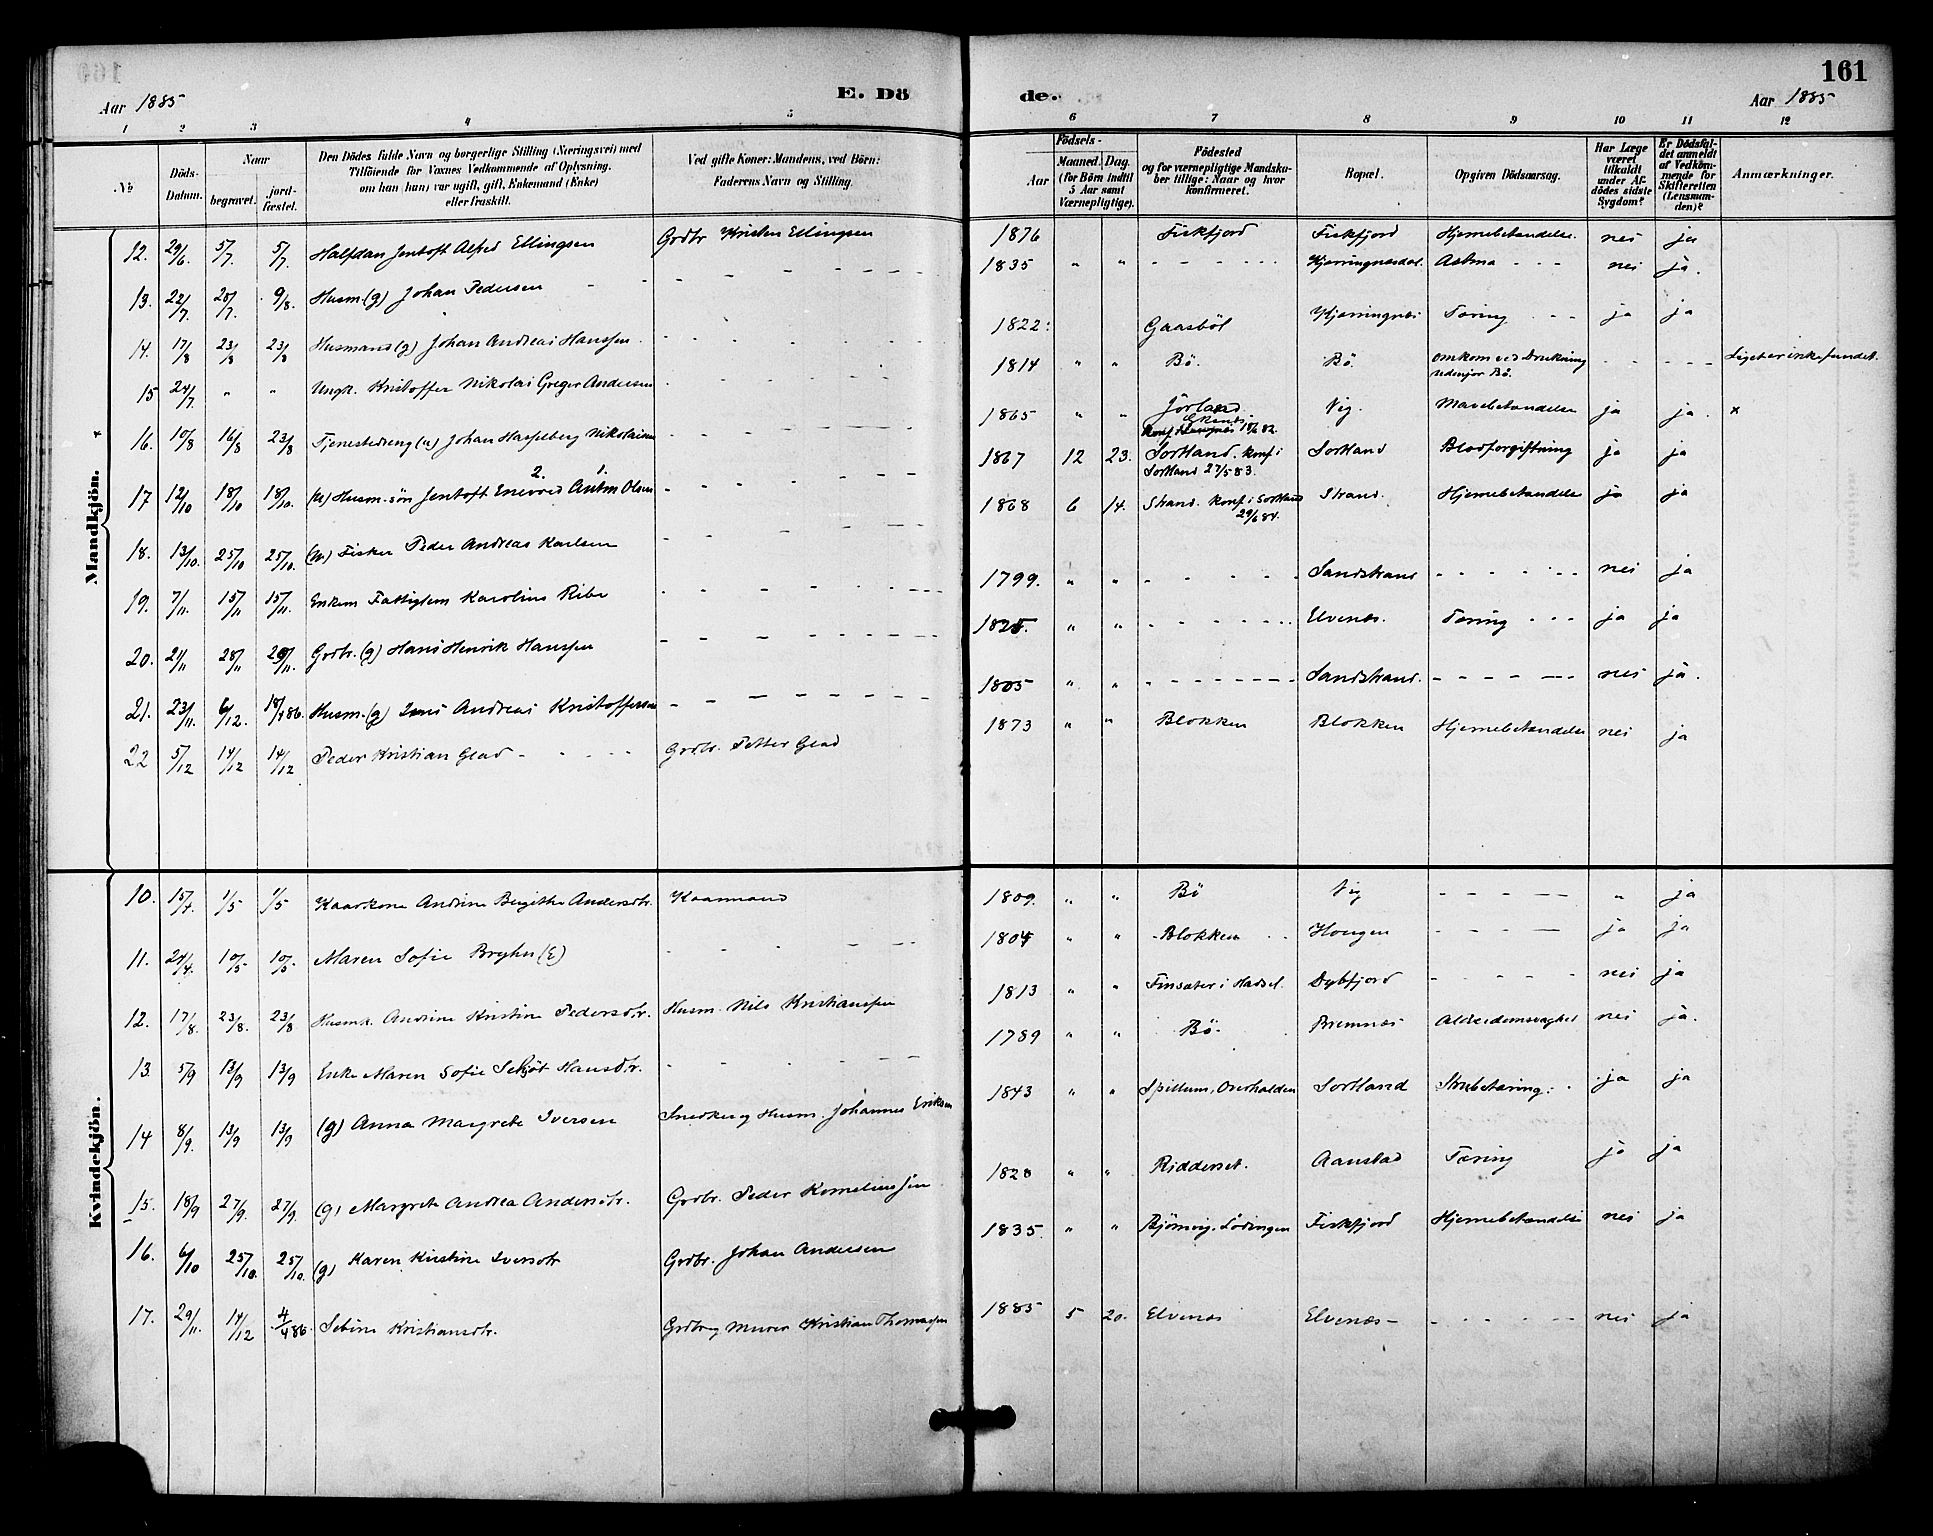 161
Aar 1885 E. Dö
de. Aar 1885
1 2 3 4 5
6 7 8 9 10 11 12
№ Döds-Datum. Naar begravet. jord-fæstet. Den Dödes fulde Navn og borgerlige Stilling (Næringsvei) med Tilföiende for Voxnes Vedkommende af Oplysning, om han (hun) var ugift, gift, Enkemand (Enke) eller fraskilt. Ved gifte Koner: Mandens, ved Börn: Faderens Navn og Stilling.
Födsels- Aar Maaned. Dag. (for Börn indtil 5 Aar samt Værnepligtige). Födested og for værnepligtige Mandskaber tillige: Naar og hvor konfirmeret. Bopæl. Opgiven Dödsaarsag. Har Læge været tilkaldt under Afdödes sidste Sygdom? Er Dödsfaldet anmeldt af Vedkommende for Skifteretten (Lensmanden)? Anmærkninger.
Mandkjön.
12. 29/6. 5/7. 5/7. Halfdan Jentoft Alfred Ellingsen Grdbr Kristen Ellingsen
1876 Fiskfjord Fiskfjord Hjernebetændelse. nei ja
13. 22/7. 28/7. 9/8. Husm. (g) Johan Pedersen - - -
1835 " " - - - - - Kjerringnesdal. Astma - - - nei ja.
14. 17/8 23/8 23/8 Husmand (g) Johan Andreas Hanssen
1822: Gaasböl Kjerringnes Tæring - - ja ja
15 24/7. " " Ungk. Kristoffer Nikolai Greger Andersen
1814 " " Bö. Bö. omkom ved Drukning udenfor Bö. - - - - Liget er ikke fundet.
× 16. 10/8 16/8 23/8 Tjenestedreng (u) Johan Hasselberg Nikolaisen
1865 " " Jörland. Vig. Mavebetændelse ja ja. ×
konf. 18/6 82.
17 12/10 18/10 18/10. (u) Husm. sön Jentoft Enevold Anton Olsen
2. 1.
1867 12 23. Sortland. konf i Sortland 27/5 83. Sortland Blodforgiftning ja ja
18. 13/10. 25/10 25/10. (u) Fisker Peder Andreas Karlsen
1868 6 14. Strand. konf. i Sortland 29/6 84. Strand. Hjernebetændelse ja ja
19. 7/11. 15/11 15/11. Enkem Fattiglem Karolius Ribe
1799. " " - - - - - Sandstrand - - - - - nei ja
20. 21/11 28/11 29/11. Grdbr. (g) Hans Henrik Hanssen
1825. " " - - - - - Elvenes. Tæring - - - ja ja
21. 23/11. 6/12. 18/4 86. Husm. (g) Andreas Kristoffersen
1805 " " - - - - - Sandstrand. - - - - - nei ja.
22 5/12 14/12 14/12 Peder Kristian Glad - - - - Grdbr. Petter Glad
1873 " " Blokken Blokken Hjernebetændelse nei ja
Kvindekjön.
10. 15/4. 1/5 1/5 Kaarkone Andrine Birgithe Andersdtr. Kaarmand
1809. " " Bö Vig - - - - " ja
11. 24/4. 10/5 10/5. Maren Sofie Bryhn (E)
1804 " " Blokken Hougen - - - - ja ja
12. 17/8. 23/8. 23/8 Husmk. Andrine Kristine Pedersdtr. Husm. Nils Kristianssen
1813 " " Finsæter i Hadsel. Dybfjord - - - - - nei ja
13. 5/9 13/9 13/9 Enke Maren Sofie Hansdtr.
1789 " " Bö. Bremnes Alderdomsvaghed nei ja.
14 8/9. 13/9 13/9 (g) Anna Margrete Iversen Snedker og Husm. Johannes Eriksen
1843 " " Spillum, Overhalden Sortland Strubetæring. ja ja
15. 18/9 27/9. 27/9. (g) Margrete Andrea Andersdtr. Grdbr. Peder Korneliussen
1828 " " Ridderset. Aanstad Tæring ja ja
16. 6/10 25/10. 25/10. (g) Karen Kristine Iversdtr Grdbr. Johan Andersen
1835. " " Björnvig, Lödingen Fiskfjord Hjernebetændelse nei ja
17. 29/11. 14/12 4/4 86. Sebine Kristiansdtr. Grdbr og Murer Kristian Thomassen
1885 5 20. Elvenes Elvenes - - - - - nei ja